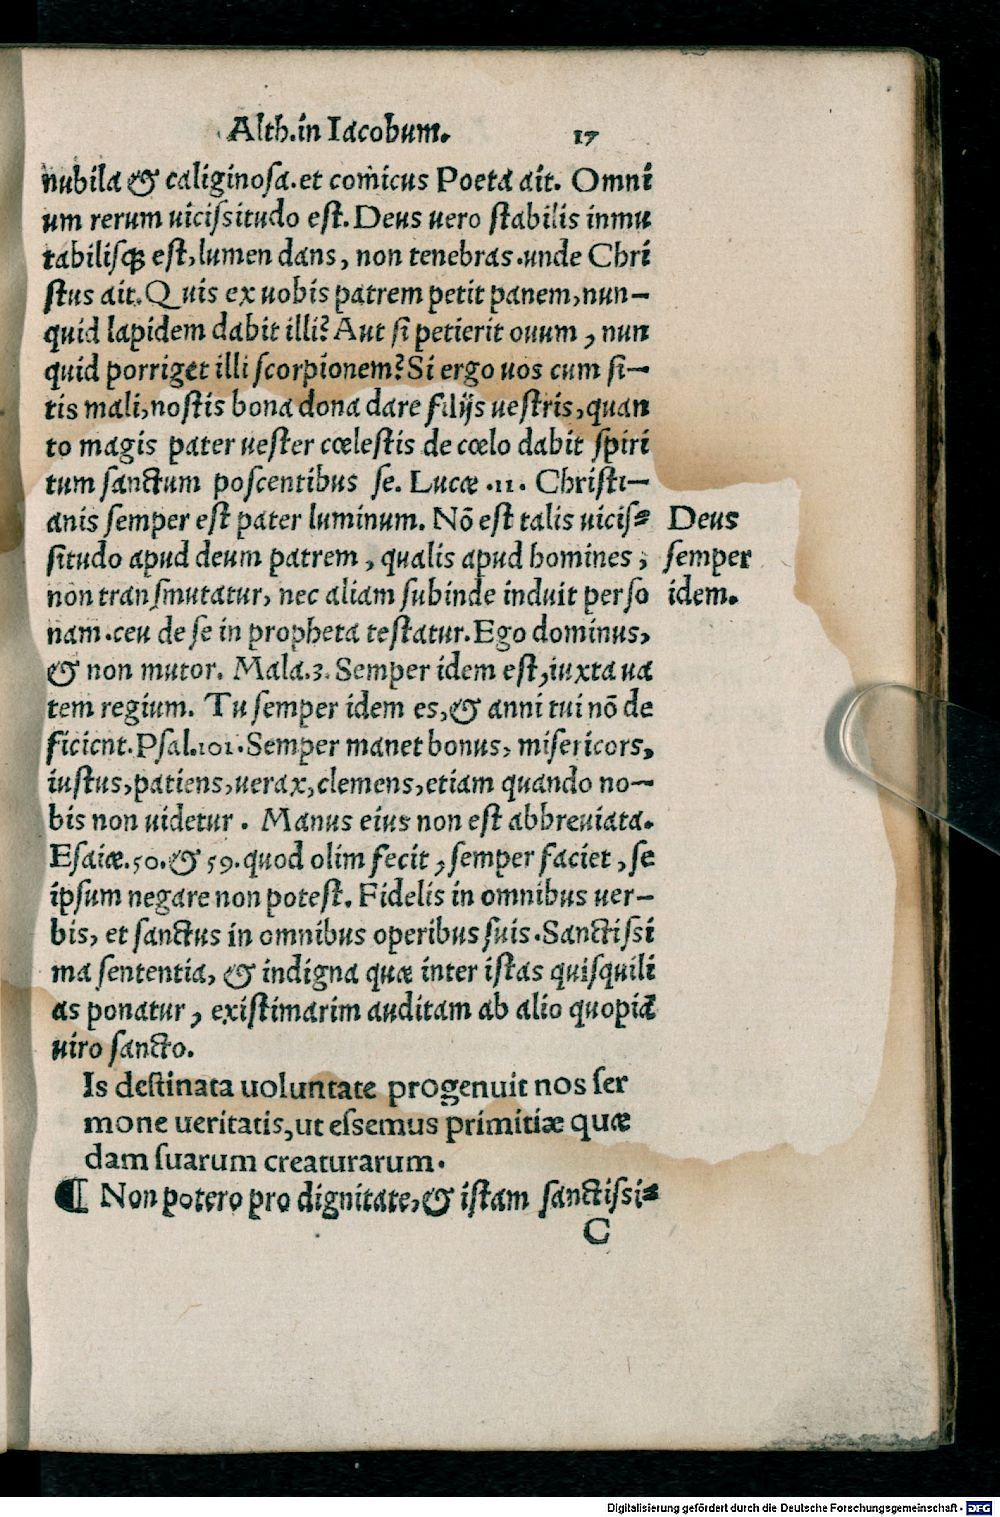 Alth.in Iacobum. 17
nubila & caliginosa.et comicus Poeta ait. Omni
um rerum uicissitudo est. Deus uero stabilis inmu
tabilisq́; est, lumen dans, non tenebras.unde Chri
stus ait. Quis ex uobis patrem petit panem, nun-
quid lapidem dabit illi? Aut si petierit ouum, nun
quid porriget illi scorpionem? Si ergo uos cum si-
tis mali, nostis bona dona dare filijs uestris, quan
to magis pater uester cœlestis de cœlo dabit spiri
tum sanctum poscentibus se. Lucæ .11. Christi-
anis semper est pater luminum. Nō est talis uicis-
situdo apud deum patrem, qualis apud homines;
non transmutatur, nec aliam subinde induit perso
nam.ceu de se in propheta testatur. Ego dominus,
& non mutor. Mala.3. Semper idem est, iuxta ua
tem regium. Tu semper idem es, & anni tui nō de
ficient. Psal.101. Semper manet bonus, misericors,
iustus, patiens, uerax, clemens, etiam quando no-
bis non uidetur. Manus eius non est abbreuiata.
Esaiæ.50.& 59. quod olim fecit, semper faciet, se
ipsum negare non potest. Fidelis in omnibus uer-
bis, et sanctus in omnibus operibus suis. Sanctissi
ma sententia, & indigna quæ inter istas quisquili
as ponatur, existimarim auditam ab alio quopiā
uiro sancto.
Is destinata uoluntate progenuit nos ser
mone ueritatis, ut essemus primitiæ quæ
dam suarum creaturarum.
¶ Non potero pro dignitate, & istam sanctissi-
C
Deus
semper
idem.
Digitalisierung gefördert durch die Deutsche Forschungsgemeinschaft - DFG